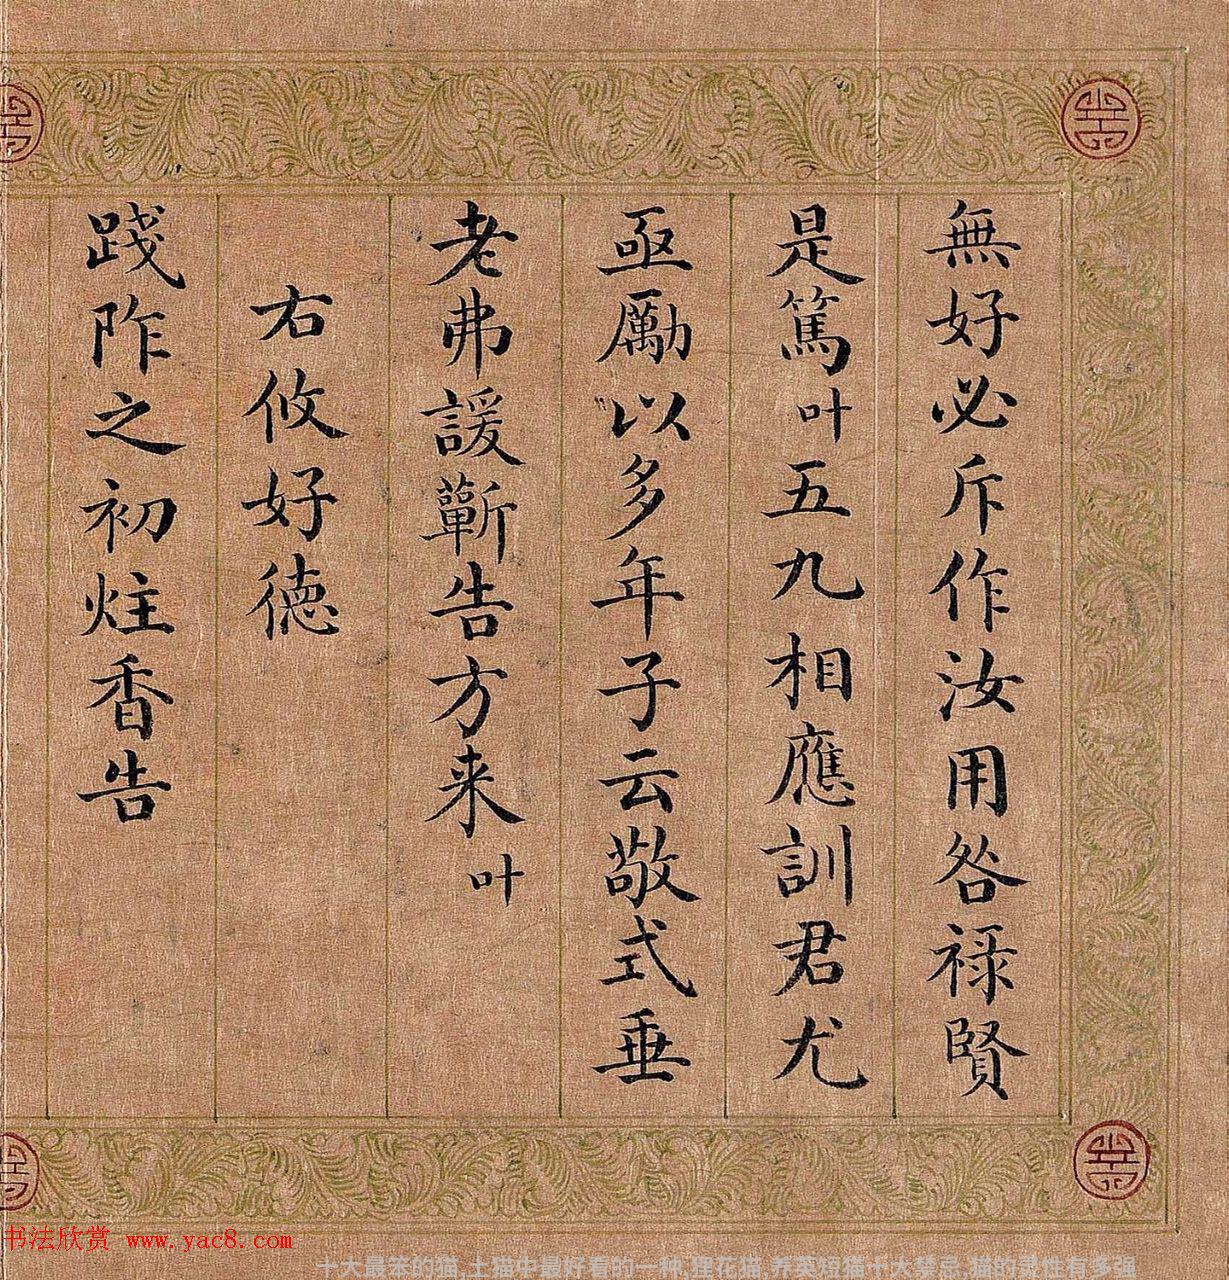 無好必斥作汝用咎禄賢
是篤叶五九相應訓君尤
亟勵以多年子云敬式垂
老弗諼蘄告方来叶
右攸好德
踐阼之初炷香告
书法欣赏 www.yac8.com
十大最笨的猫,土猫中最好看的一种,狸花猫,养英短猫十大禁忌,猫的灵性有多强